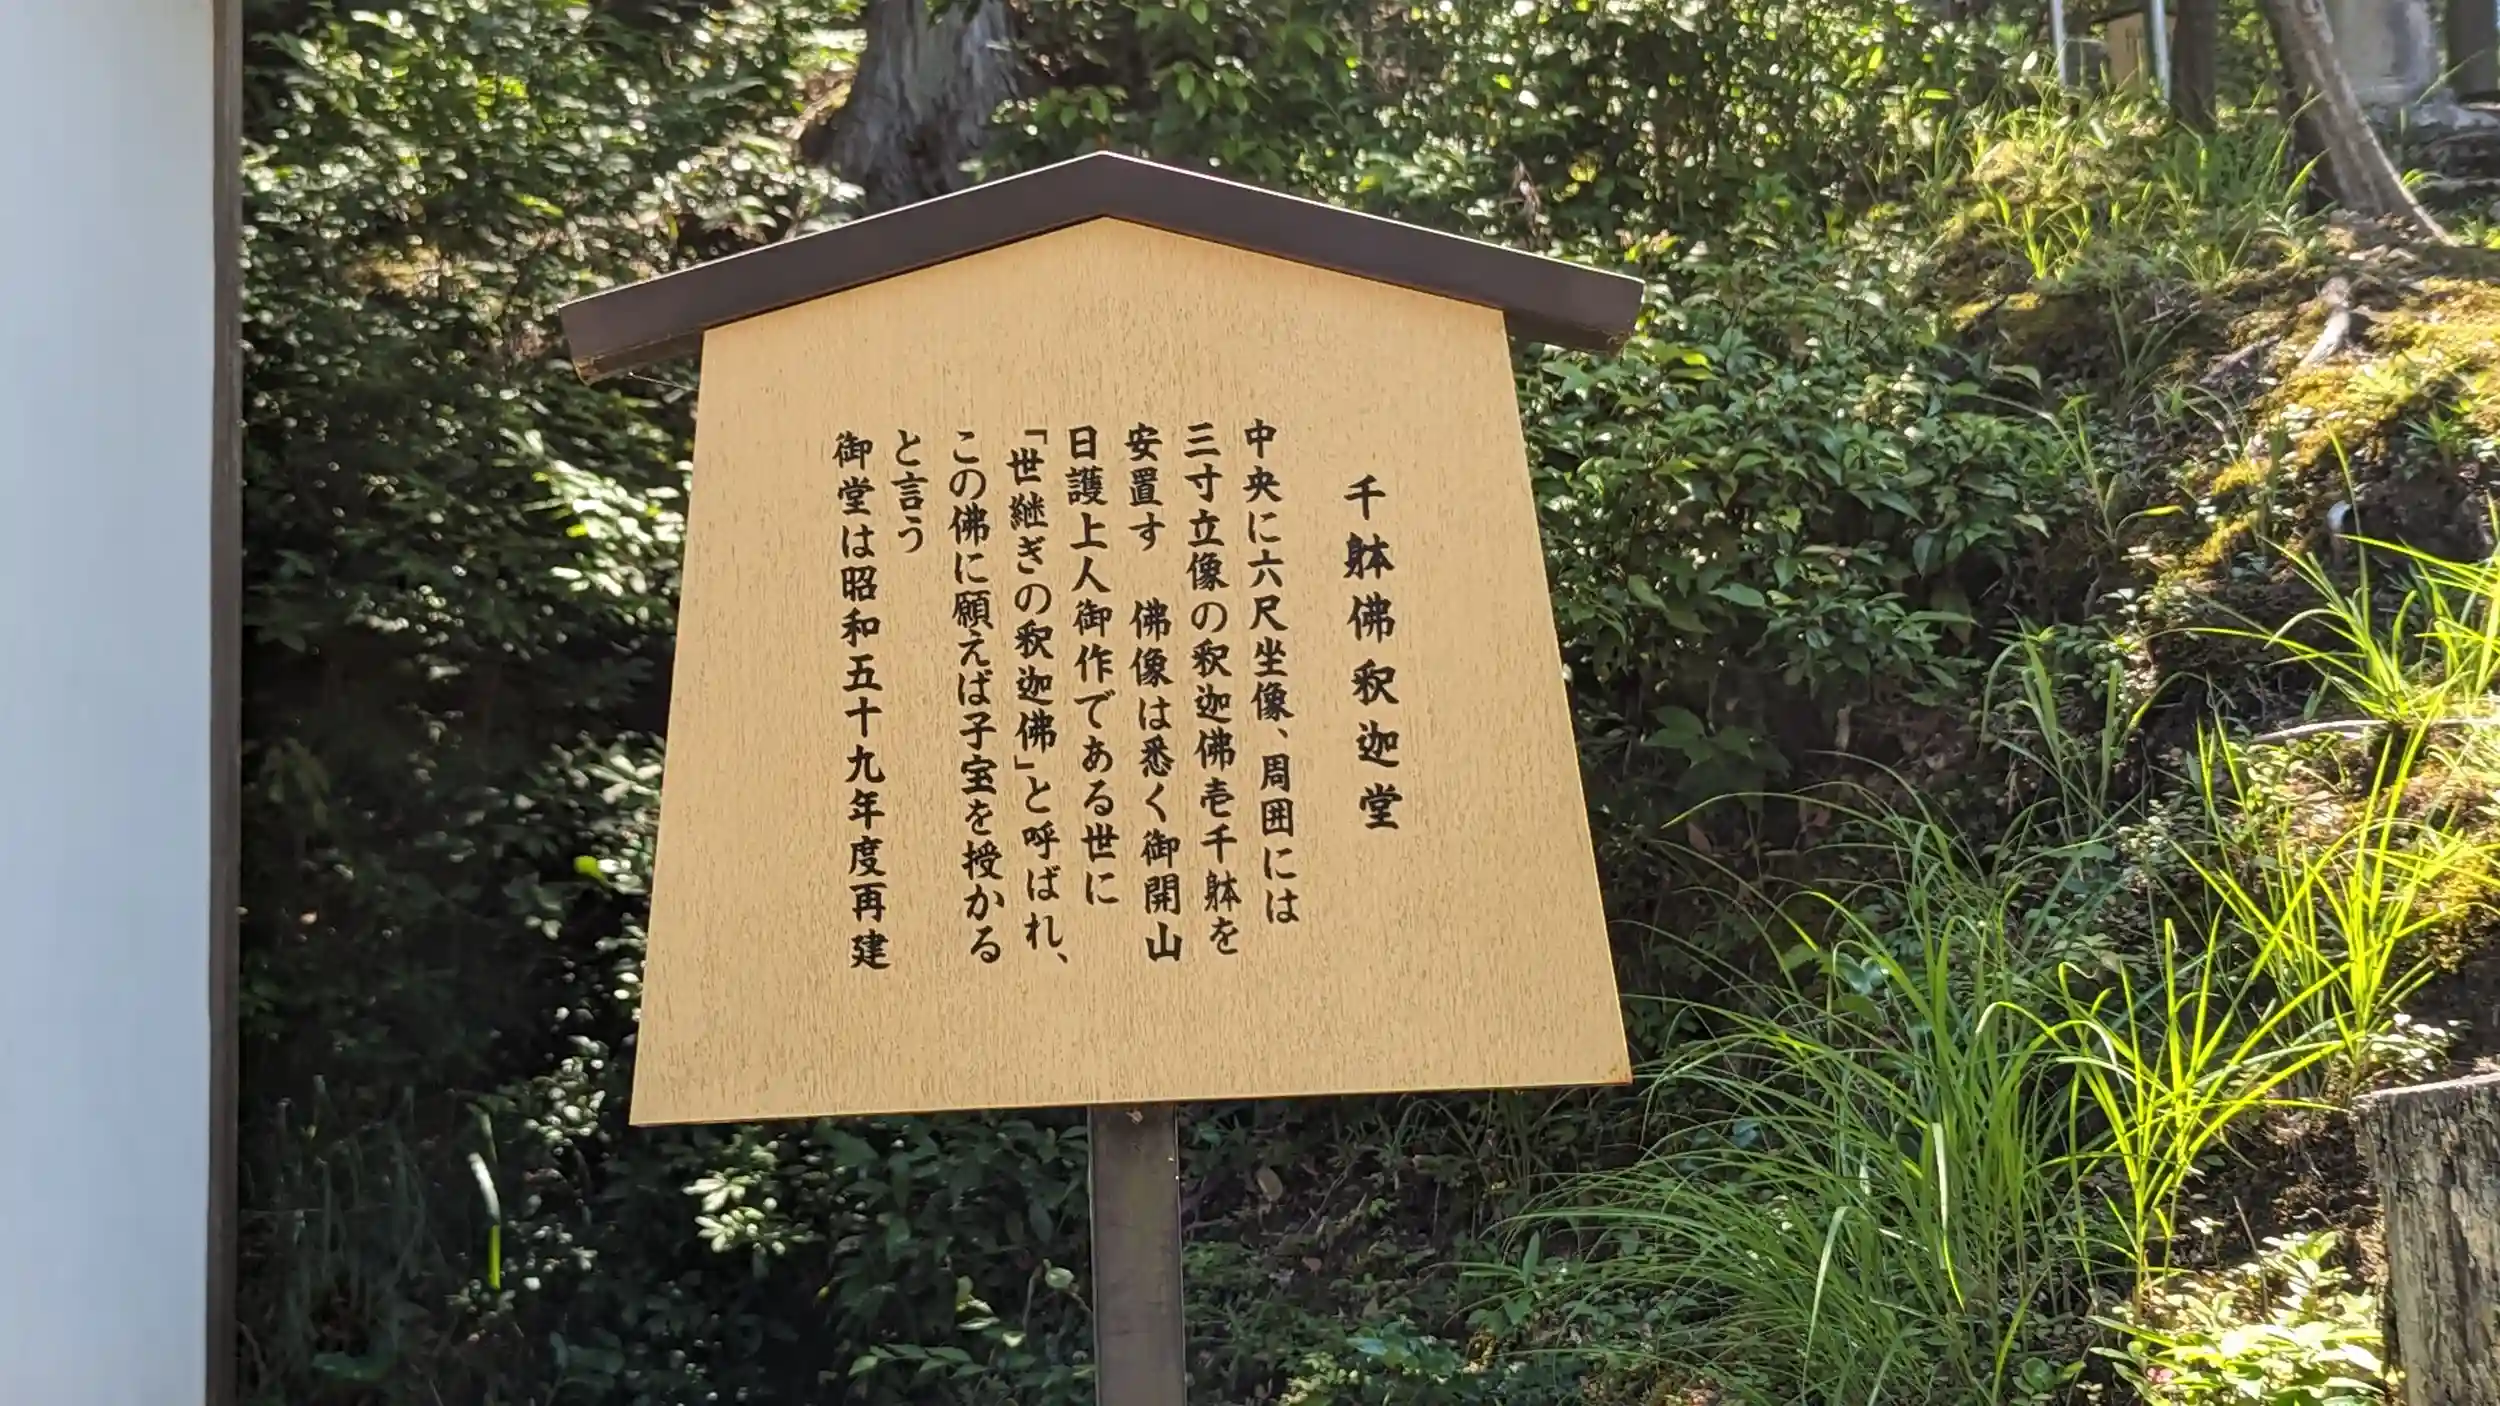 千躰佛釈迦堂
中央に六尺坐像、周囲には
三寸立像の釈迦佛壱千躰を
安置す　佛像は悉く御開山
日護上人御作である世に
「世継ぎの釈迦佛」と呼ばれ、
この佛に願えば子宝を授かる
と言う
御堂は昭和五十九年度再建